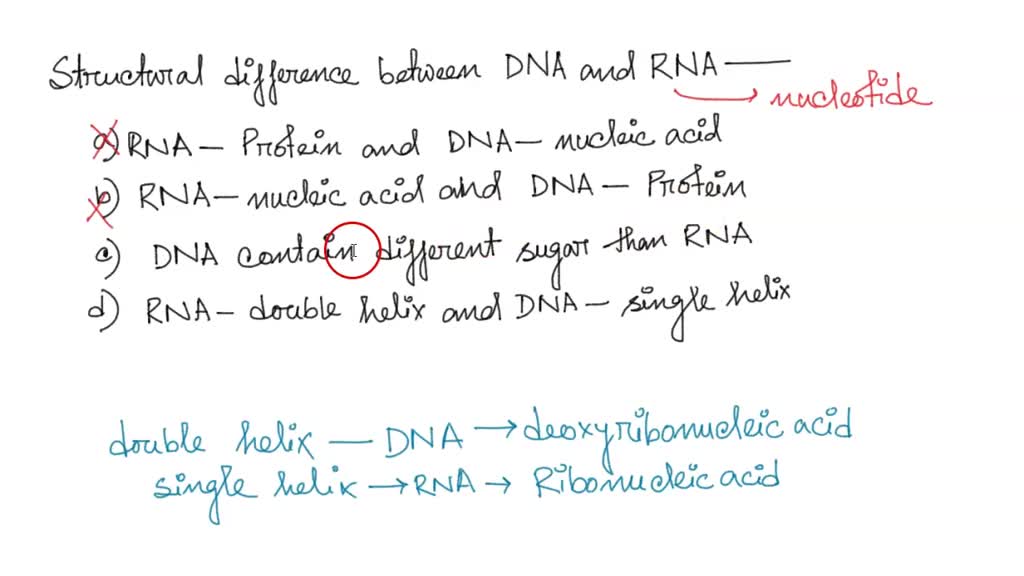 Structural difference between DNA and RNA —
nucleotide
a) RNA – Protein and DNA – nucleic acid
b) RNA – nucleic acid and DNA – Protein
c) DNA contain different sugar than RNA
d) RNA – double helix and DNA – single helix
double helix — DNA → deoxyribonucleic acid
single helix → RNA → Ribonucleic acid